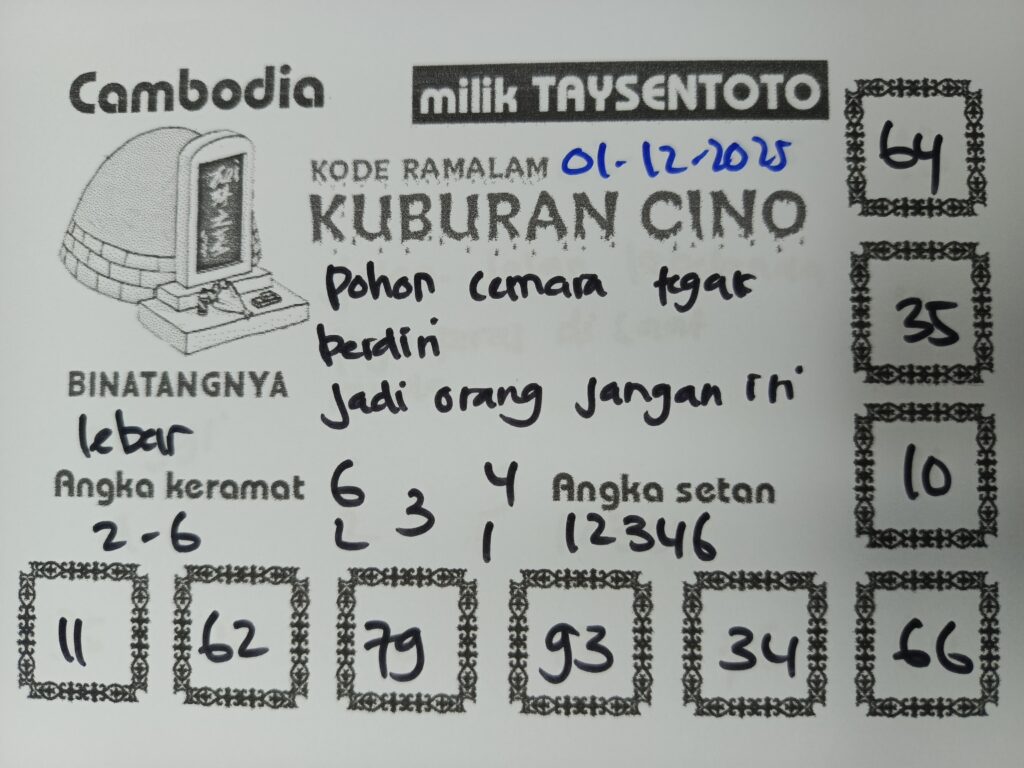 Cambodia
milik TAYSENTOTO
KODE RAMALAM 01-12-2025
KUBURAN CINO
Pohon cemara tegak
berdiri
Jadi orang jangan iri
BINATANGNYA
lebar
Angka keramat
2-6
6 4
3
2 1
Angka setan
12346
64
35
10
11 62 79 93 34 66